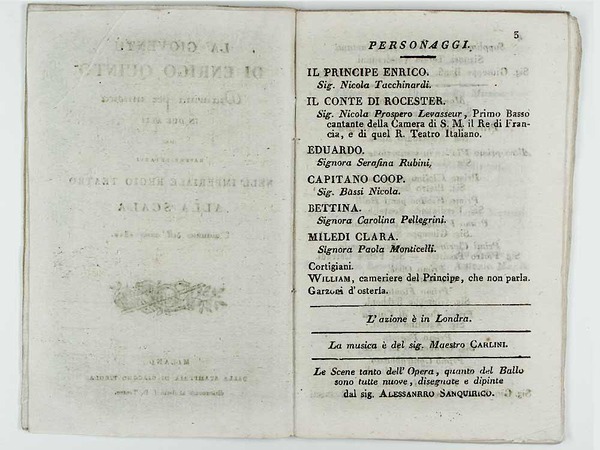 3
PERSONAGGI.
IL PRINCIPE ENRICO.
Sig. Nicola Tacchinardi.
IL CONTE DI ROCESTER.
Sig. Nicola Prospero Levasseur, Primo Basso
cantante della Camera di S. M. il Re di Fran-
cia, e di quel R. Teatro Italiano.
EDUARDO.
Signora Serafina Rubini,
CAPITANO COOP.
Sig. Bassi Nicola.
BETTINA.
Signora Carolina Pellegrini.
MILEDI CLARA.
Signora Paola Monticelli.
Cortigiani.
WILLIAM, cameriere del Principe, che non parla.
Garzoni d'osteria.
L'azione è in Londra.
La musica è del sig. Maestro CARLINI.
Le Scene tanto dell'Opera, quanto del Ballo
sono tutte nuove, disegnate e dipinte
dal sig. ALESSANRRO SANQUIRICO.